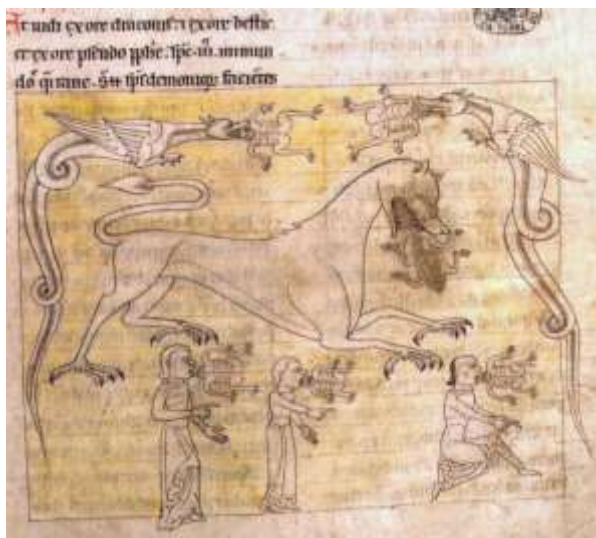 Et uidi ex ore draconis ⁊ ex ore bestie
et ex ore pseudo pphe. sp̄c .iii. inmun
do᷒ qͥ rane. Sт̄ sp̄c demonioꝝ faciētes